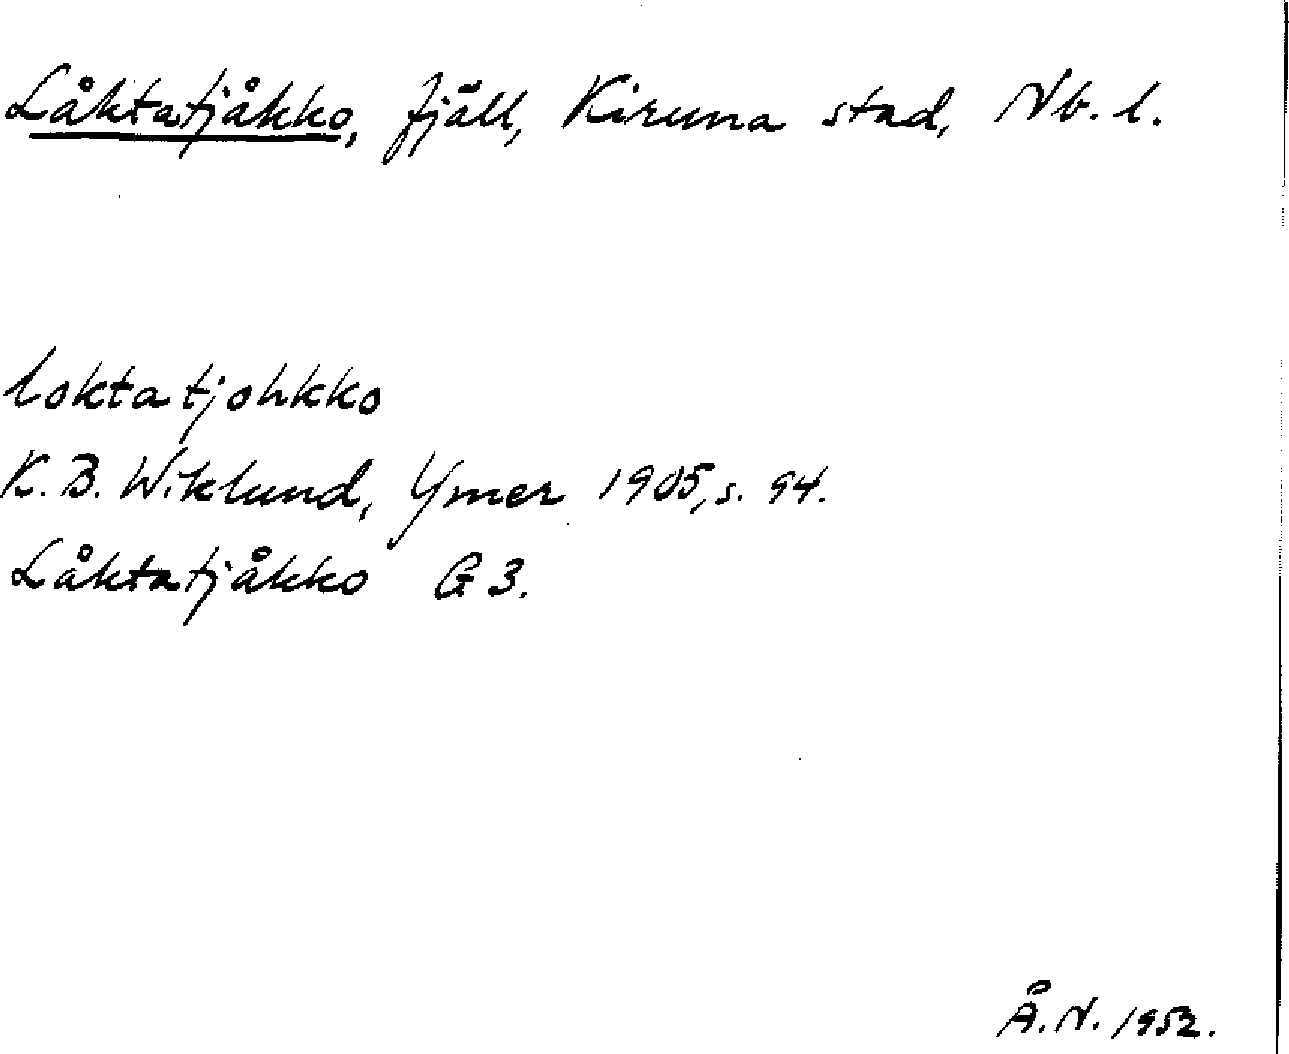 Låktatjåkko, fjäll, Kiruna stad, Nb. l.
loktatjohkko
K. B. Wiklund, Ymer 1905, s. 94.
Låktatjåkko G 3.
Å. N. 1952.